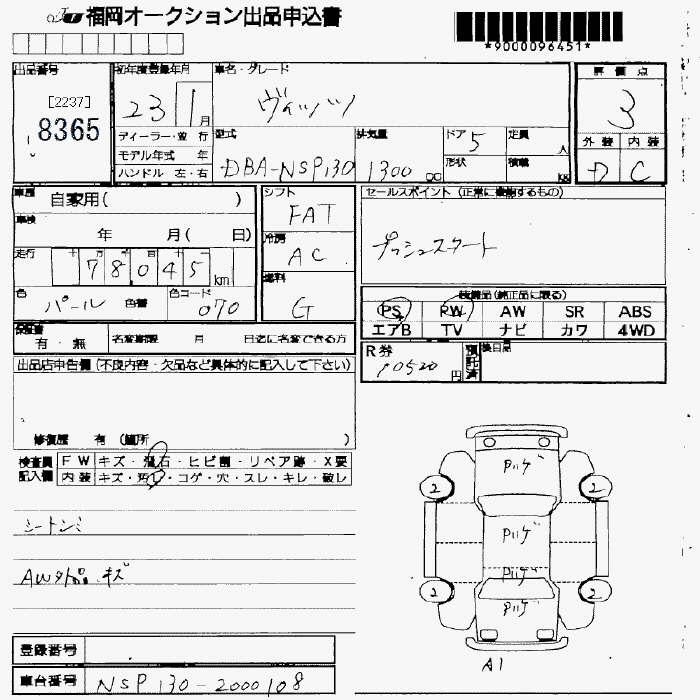 福岡オークション出品申込書
*9000096451*
出品番号
[2237]
8365
初年度登録年月
23 1月
ディーラー・並行
モデル年式 年
ハンドル 左・右
車名・グレード
ヴィッツ
型式
DBA-NSP130
排気量
1300 cc
ドア
5
形状
定員
人
積載
kg
評価点
3
外装 内装
D C
車歴
自家用( )
車検
年 月( 日)
走行
十 万 千 百 十
78045 km
色
パール 色替
色コード
070
シフト
FAT
冷房
AC
燃料
G
セールスポイント (正常に機能するもの)
プッシュスタート
装備品(純正品に限る)
PS PW AW SR ABS
エアB TV ナビ カワ 4WD
保証書
有・無
名変期限 月 日迄に名変できる方
R券
10520円
預託済
後日品
出品店申告欄 (不良内容・欠品など具体的に記入して下さい)
修復歴 有 (箇所 )
検査員
記入欄
FW キズ・飛石・ヒビ割・リペア跡・X要
内装 キズ・汚レ・コゲ・穴・スレ・キレ・破レ
シートシミ
AW外品.キズ
Pハゲ
2 2
Pハゲ
Pハゲ
2 2
Pハゲ
A1
登録番号
車台番号
NSP130-2000108